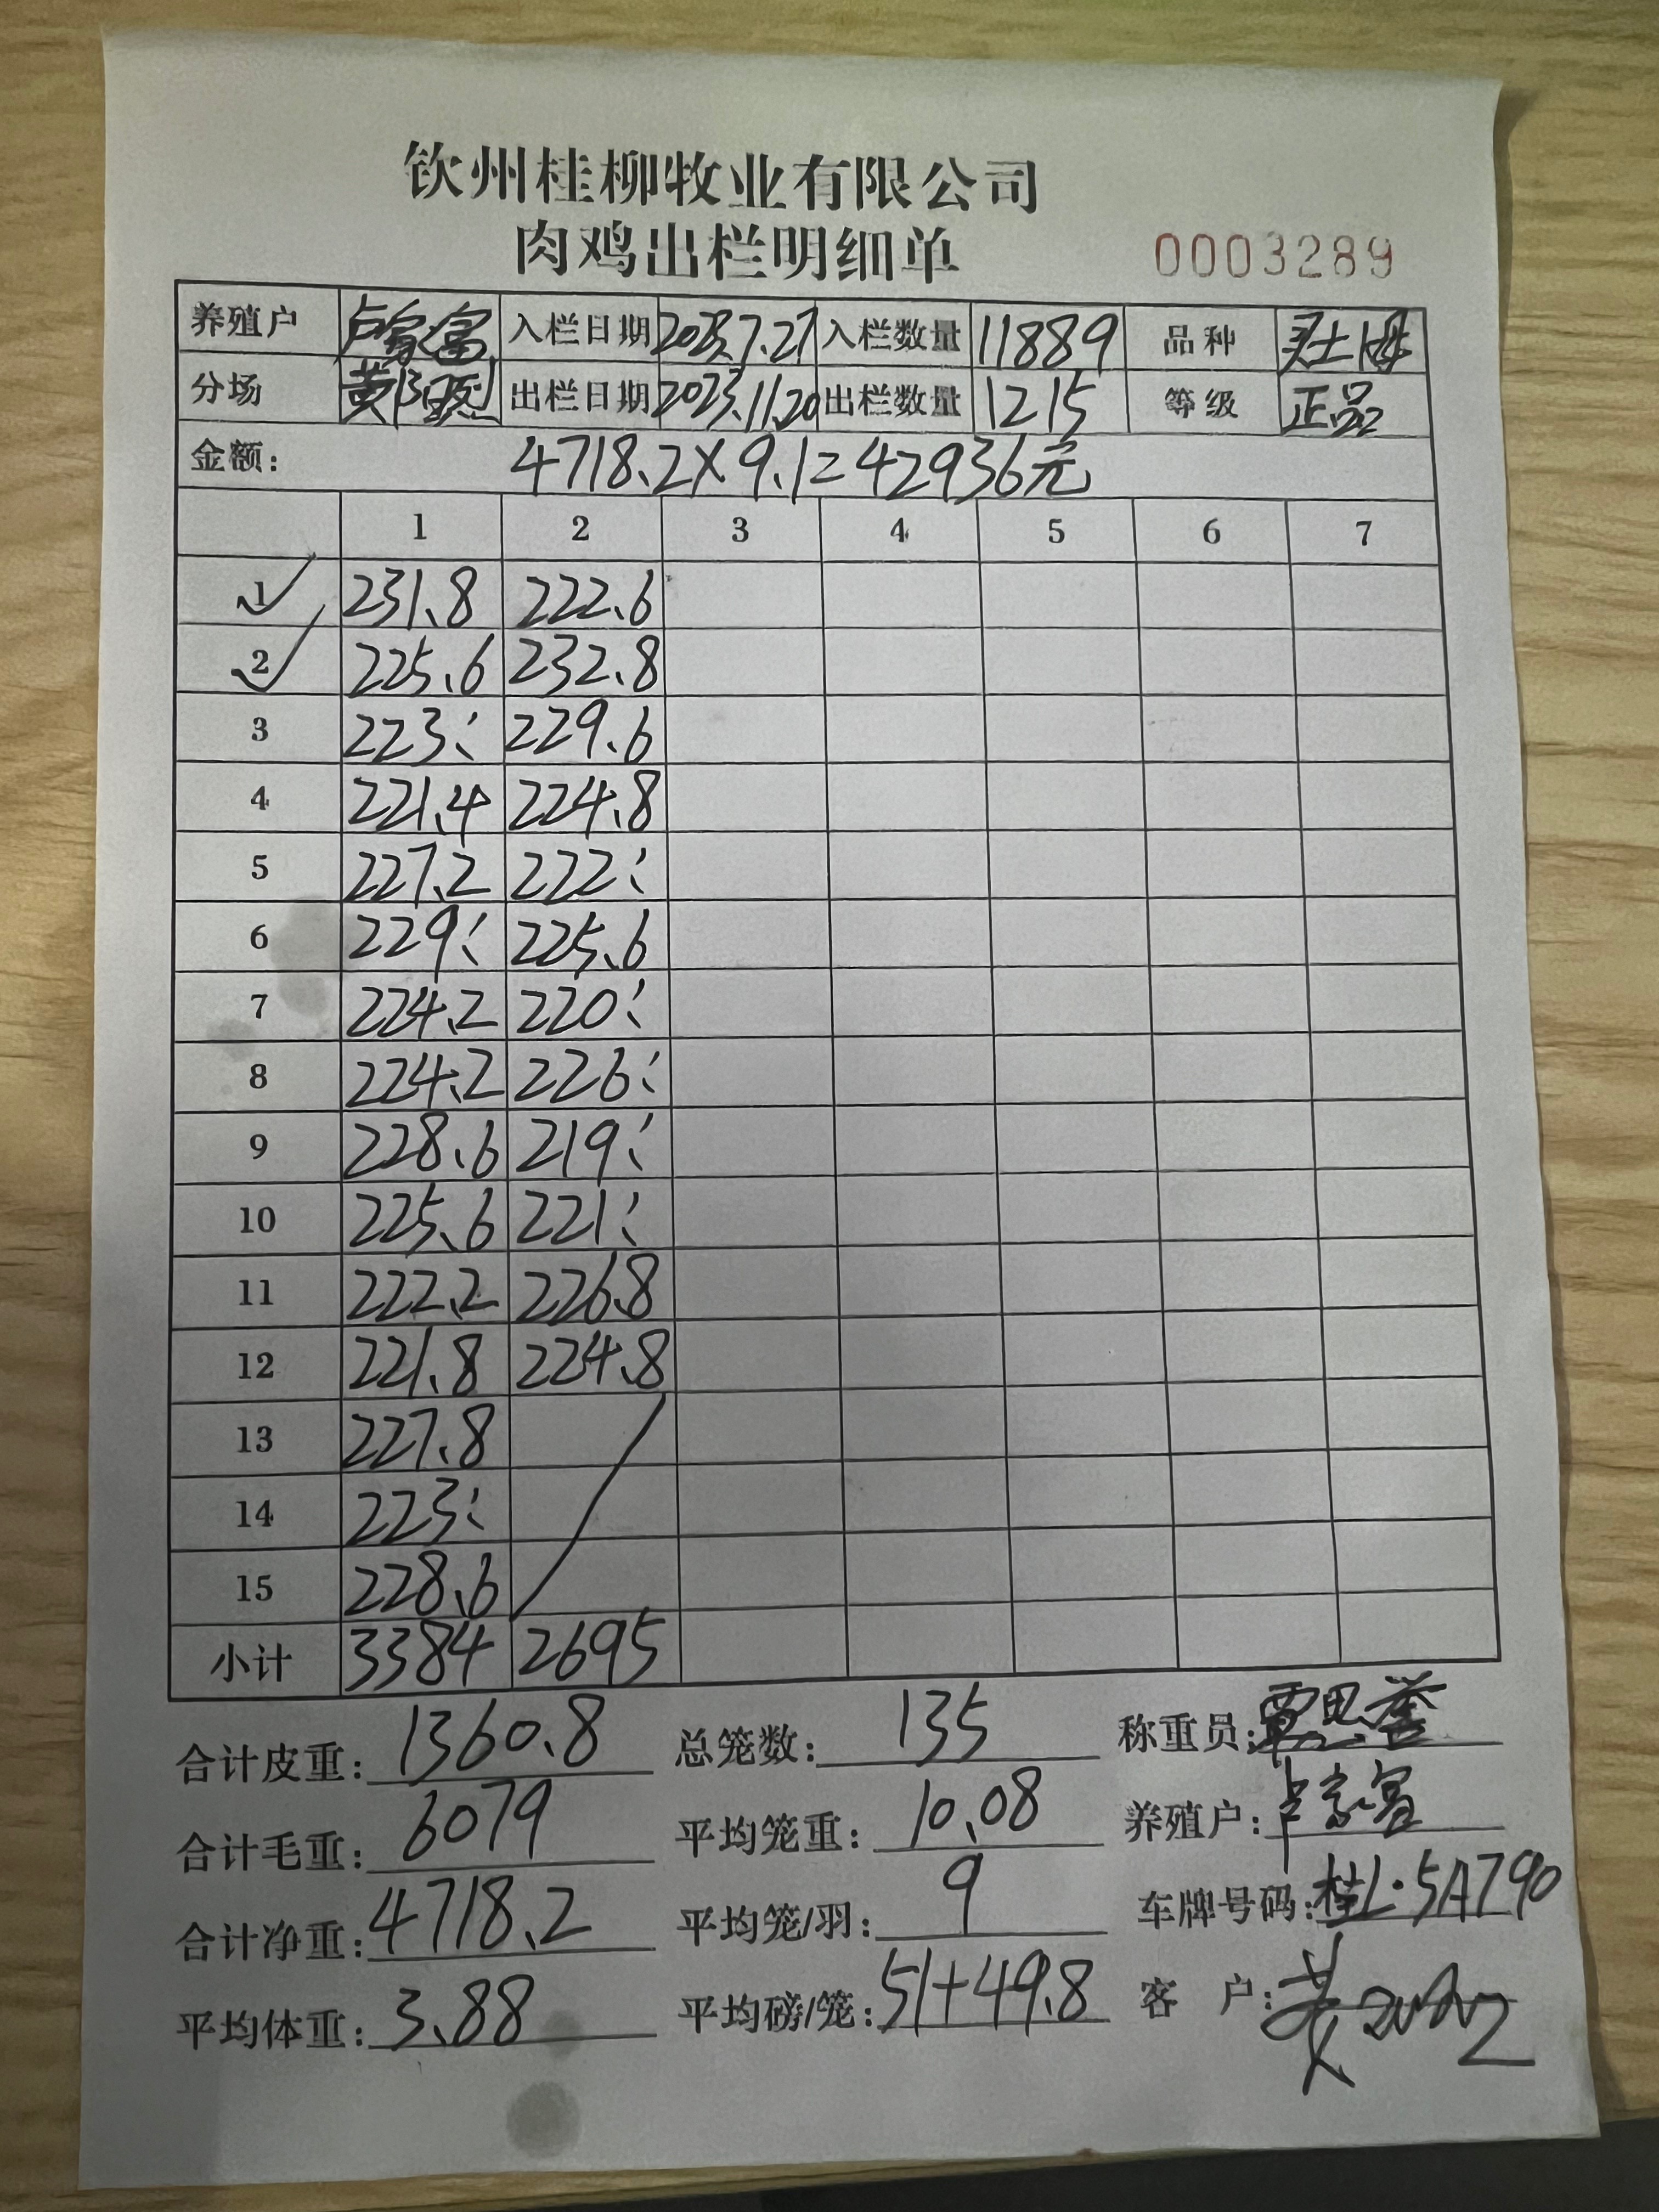 钦州桂柳牧业有限公司
肉鸡出栏明细单 0003289
养殖户 卢家富 入栏日期 2023.7.27 入栏数量 11889 品种
分场 黄 出栏日期 2023.11.20 出栏数量 1215 等级 正品
金额: 4718.2×9.1=42936元
1 2 3 4 5 6 7
1 231.8 222.6
2 225.6 232.8
3 223: 229.6
4 221.4 224.8
5 227.2 222:
6 229: 225.6
7 224.2 220:
8 224.2 226:
9 228.6 219:
10 225.6 221:
11 222.2 226.8
12 221.8 224.8
13 227.8
14 223:
15 228.6
小计 3384 2695
合计皮重: 1360.8 总笼数: 135 称重员: 覃思誉
合计毛重: 6079 平均笼重: 10.08 养殖户: 卢家富
合计净重: 4718.2 平均笼/羽: 9 车牌号码: 桂L·5A790
平均体重: 3.88 平均磅/笼: 51+49.8 客户: 黄